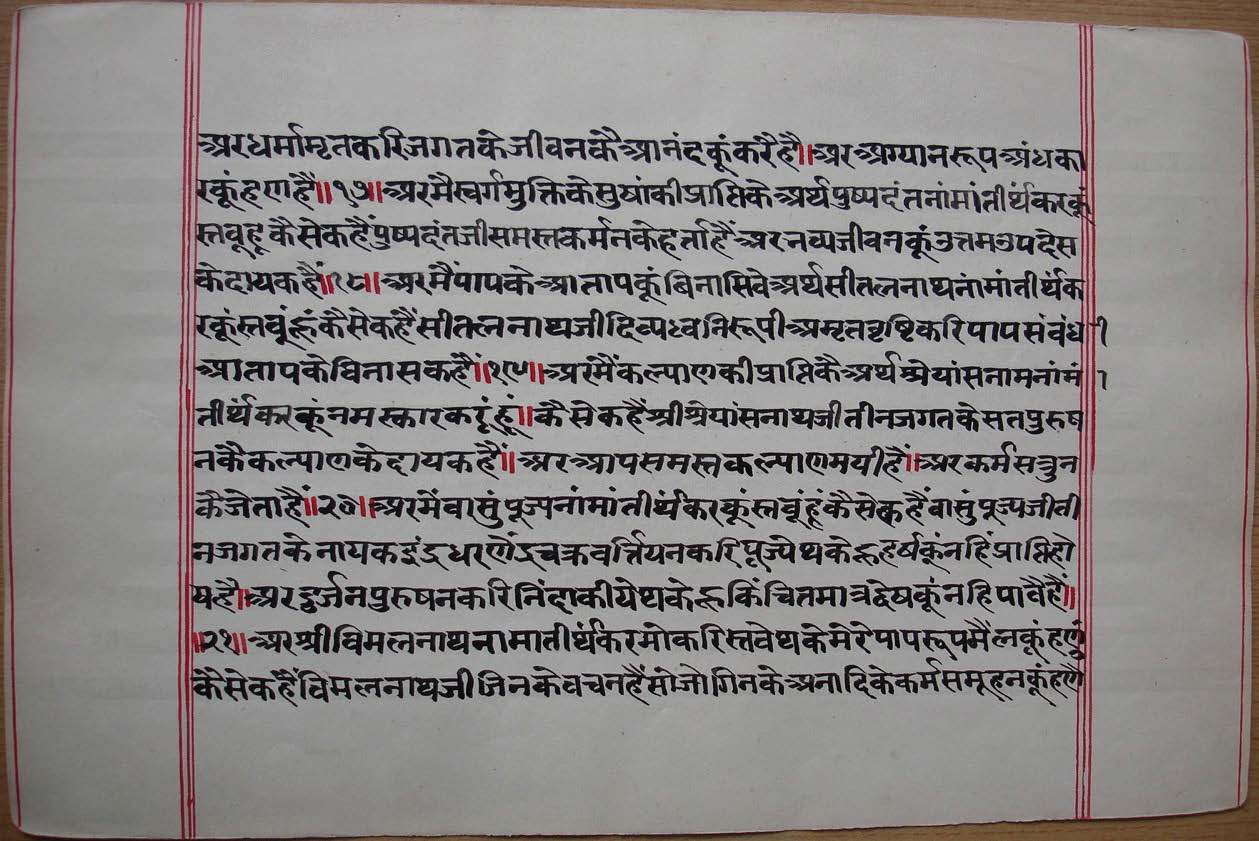 अरधर्मामृतकरिजगतकेजीवनकैआनंदकूंकरैहै॥अरअग्यानरूपअंधका
रकूंहणहैं॥१७॥अरमैस्वर्गमुक्तिकेसुषांकीप्राप्तिकेअर्थपुष्पदंतनांमांतीर्थंकरकूं
स्तवूंहूकैसेकहैंपुष्पदंतजीसमस्तकर्मनकेहर्ताहैंअरनव्यजीवनकूंउत्तमउपदेस
केदायकहैं॥१८॥अरमैंपापकेआतापकूंबिनासिवेअर्थसीतलनाथनांमांतीर्थंक
रकूंस्तवूंहूंकैसेकहैंसीतलनाथजीदिव्यध्वनिरूपीअमृतवृष्टिकरिपापसंबंधी
आतापकेविनासकहैं॥१९॥अरमैंकल्याणकीप्राप्तिकैअर्थश्रेयांसनामनांमां
तीर्थंकरकूंनमस्कारकरूंहूं॥कैसेकहैंश्रीश्रेयांसनाथजीतीनजगतकेसतपुरुष
नकैकल्याणकेदायकहैं॥अरआपसमस्तकल्याणमयीहैं॥अरकर्मसत्रुन
कैजेताहैं॥२०॥अरमैंवासुंपूज्यनांमांतीर्थंकरकूंस्तवूंहूंकैसेकहैंवासुंपूज्यजीती
नजगतकेनायकइंद्रधरणेंद्रचक्रवर्त्तियनकरिपूज्येथकेहूहर्षकूंनहिंप्राप्तिहो
यहै॥अरदुर्जनपुरुषनकरिनिंदाकीयेथकेहूकिंचितमात्रद्वेषकूंनहिपावैहैं॥
॥२१॥अरश्रीविमलनाथनामातीर्थंकरमोकरिस्तवेथकेमेरेपापरूपमैंलकूंहणूं
कैसेकहैंविमलनाथजीजिनकेवचनहैंसोजोगिनकेअनादिकेकर्मसमूहनकूंहणै